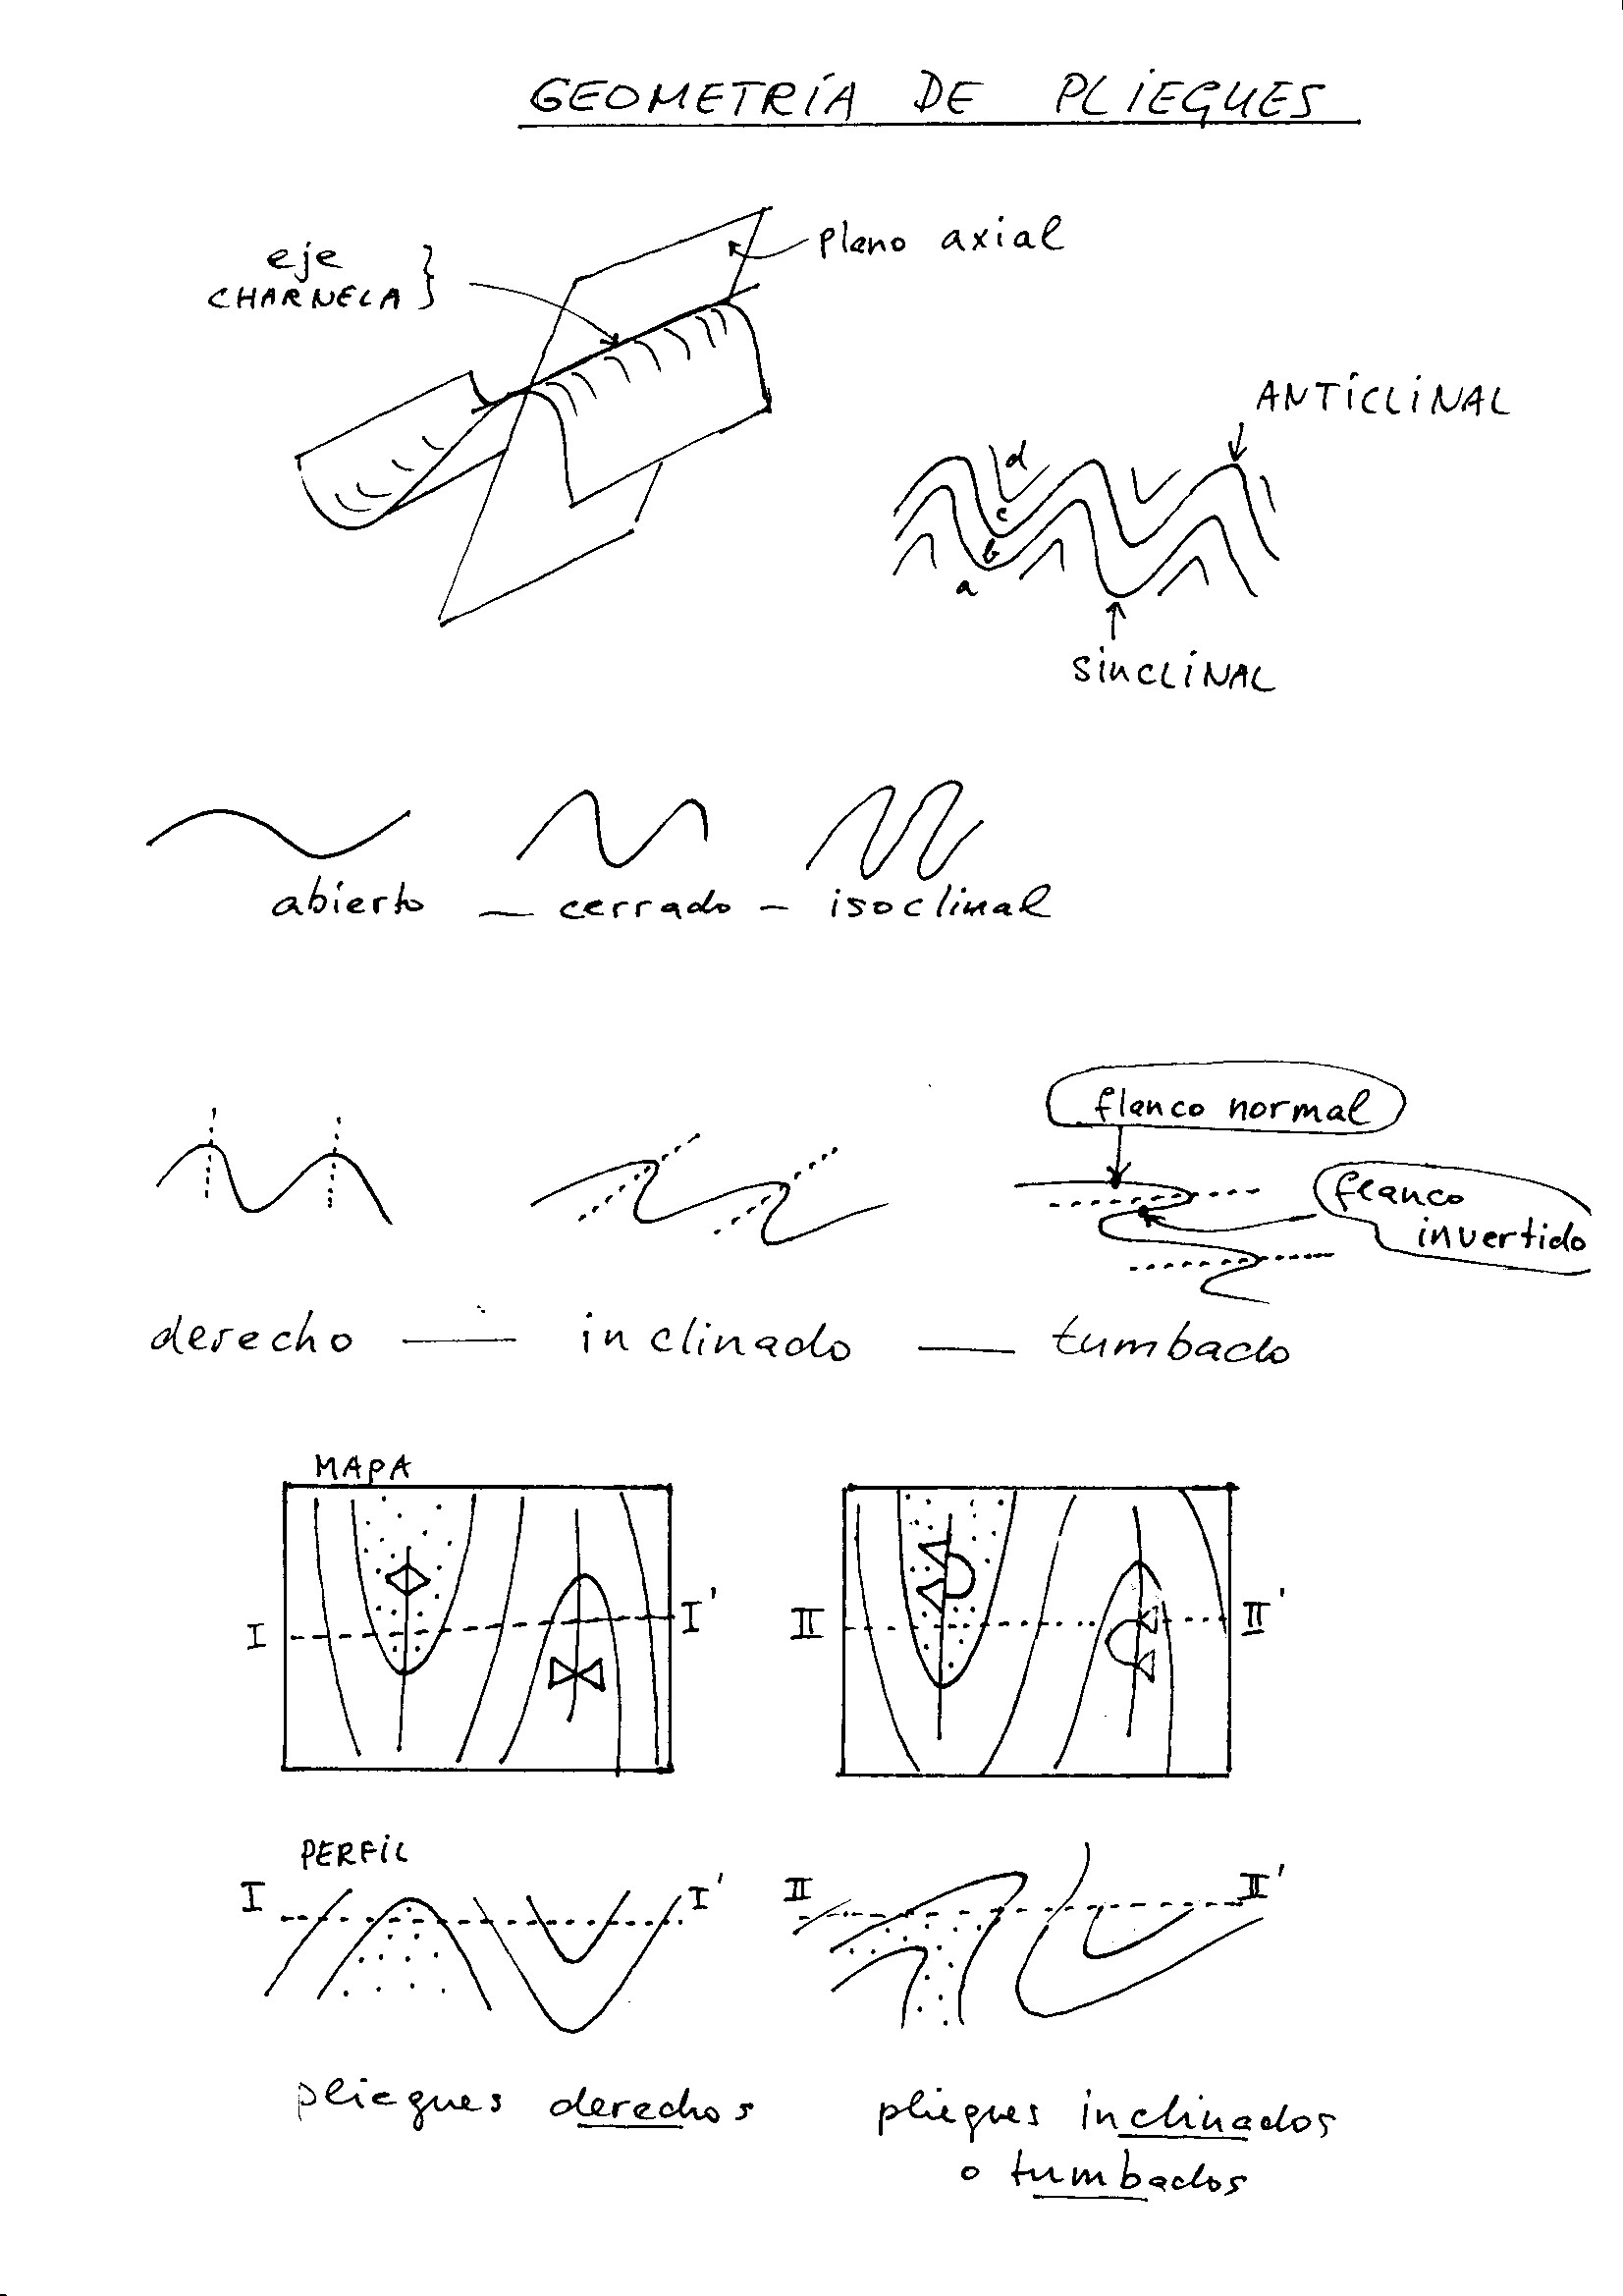 GEOMETRÍA DE PLIEGUES
eje
CHARNELA
plano axial
ANTICLINAL
d
c
b
a
SINCLINAL
abierto — cerrado — isoclinal
flanco normal
flanco
invertido
derecho — inclinado — tumbado
MAPA
I I'
II II'
PERFIL
I I'
II II'
pliegues derechos
pliegues inclinados
o tumbados